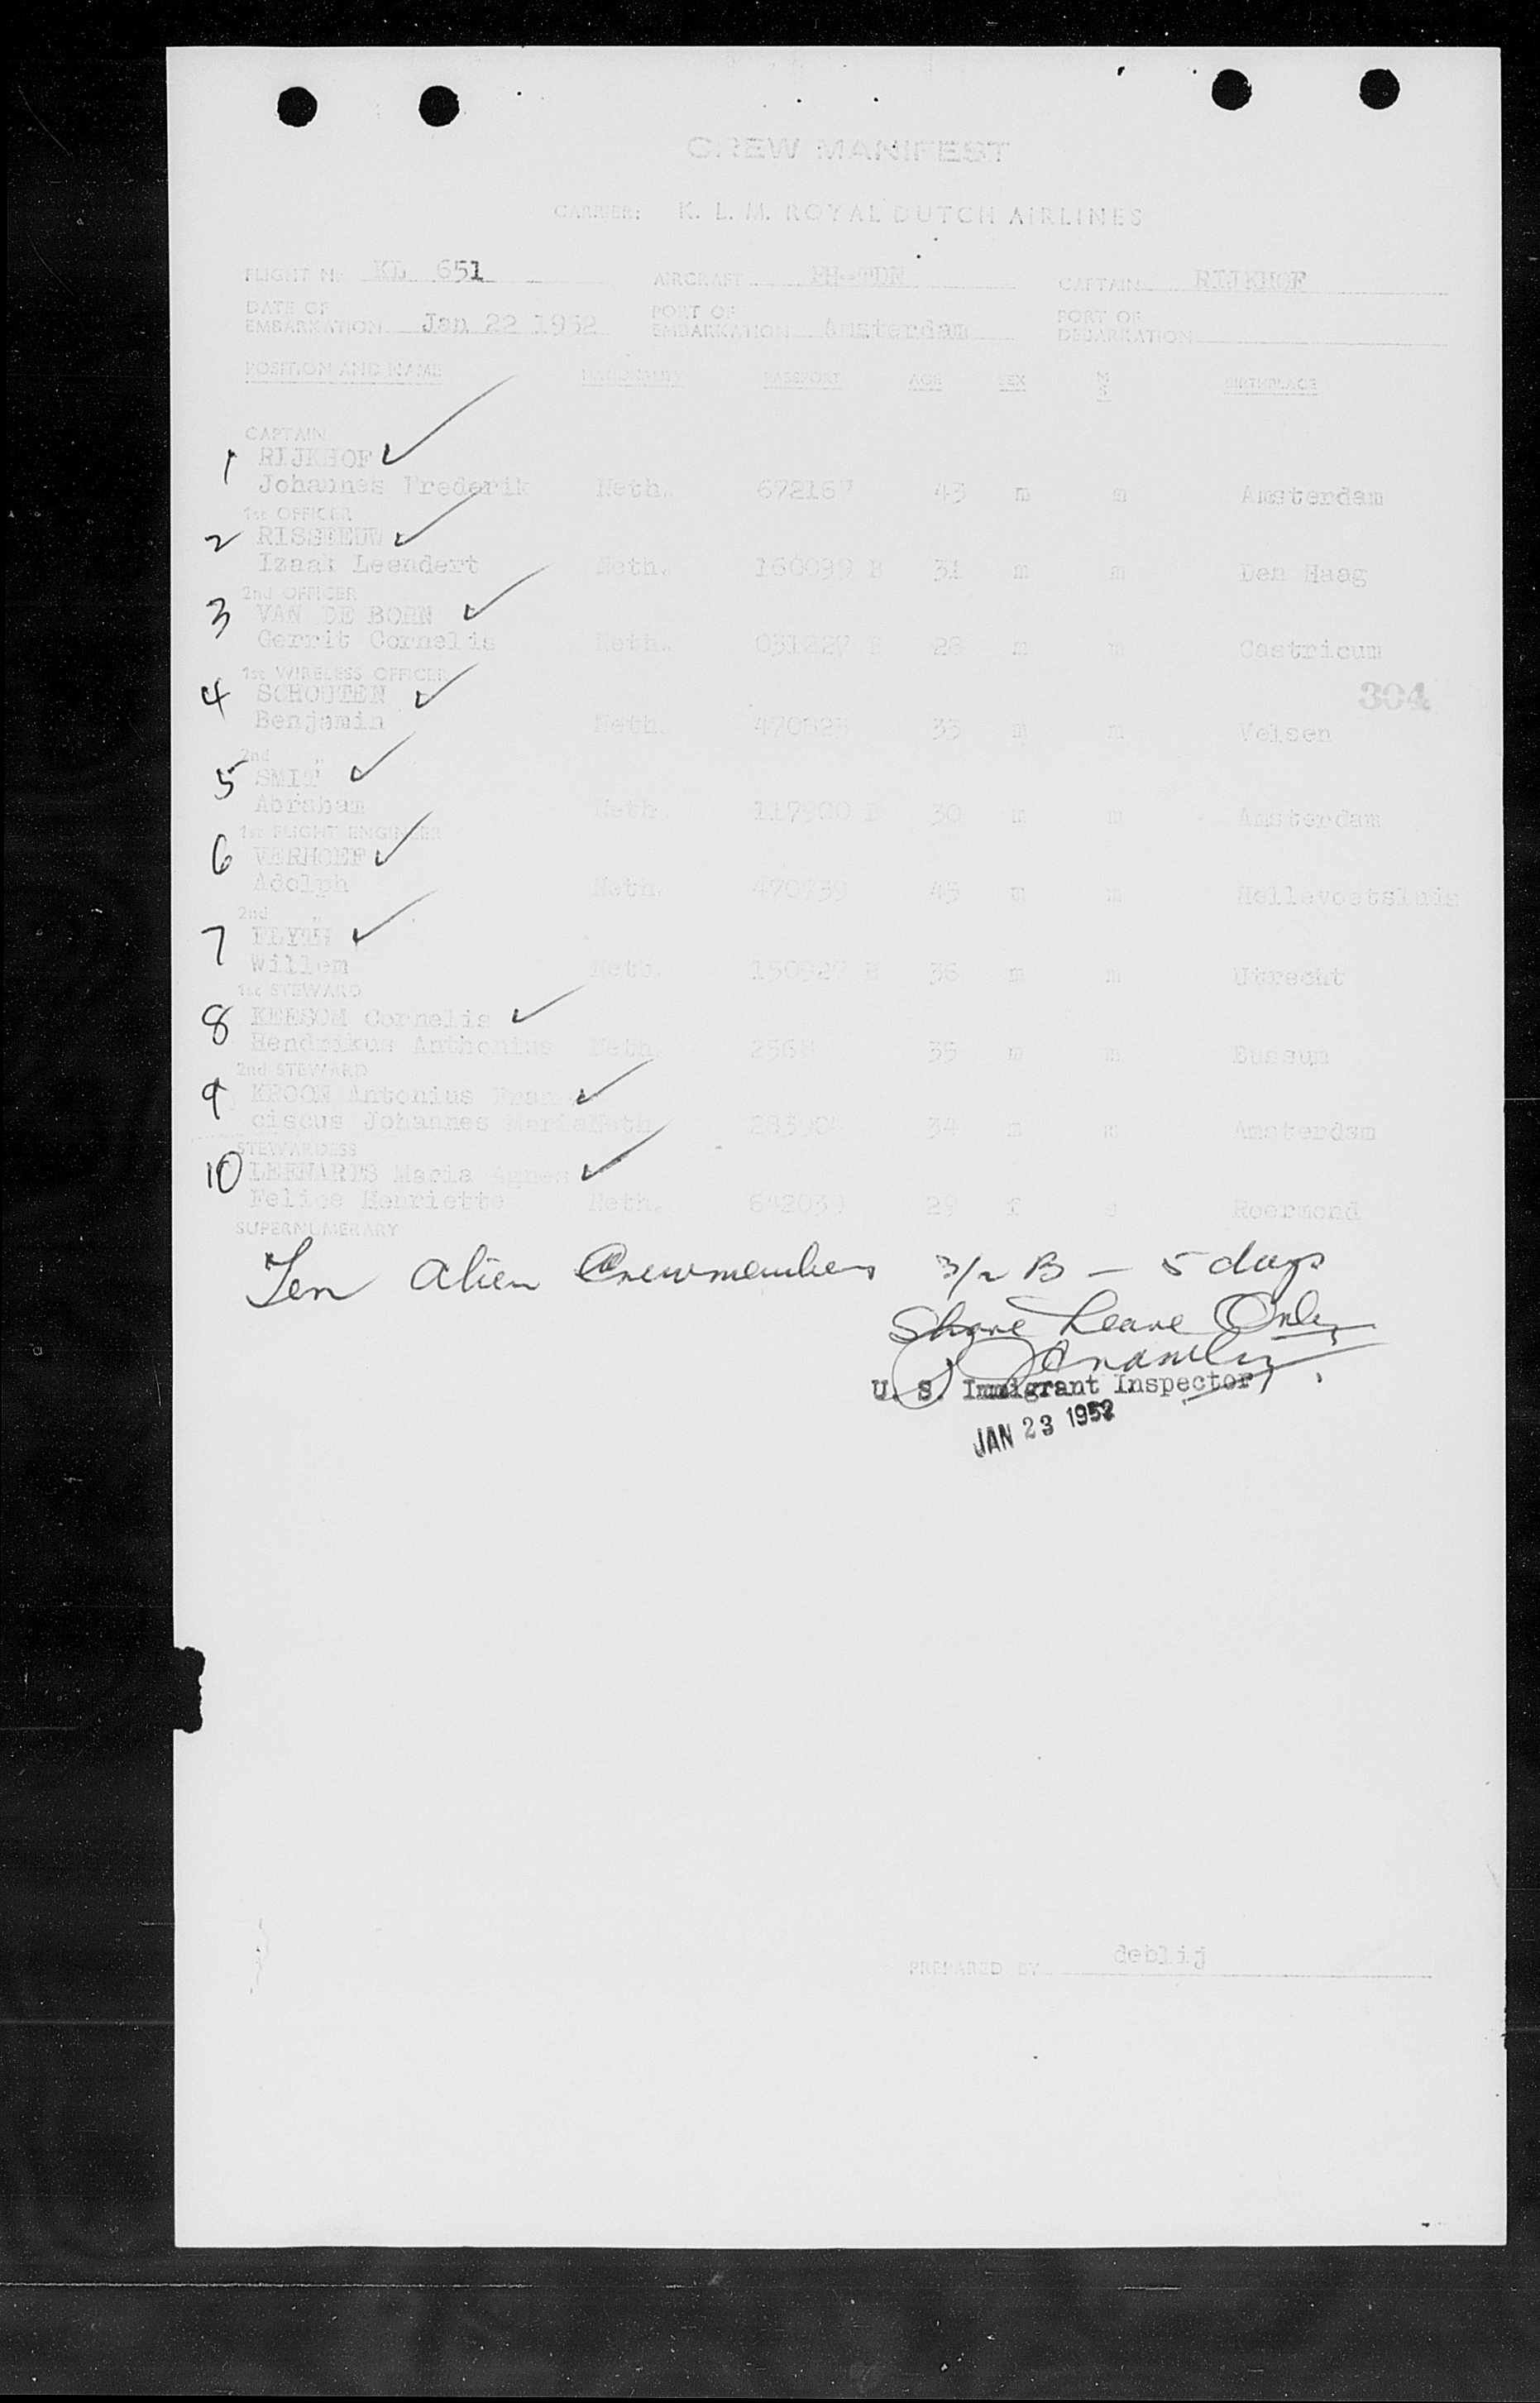 CREW MANIFEST
CARRIER: K. L. M. ROYAL DUTCH AIRLINES
FLIGHT Nr KL 651 AIRCRAFT CAPTAIN RIJKHOF
DATE OF EMBARKATION Jan 22 1952 PORT OF EMBARKATION Amsterdam PORT OF DEBARKATION
POSITION AND NAME NATIONALITY PASSPORT AGE SEX BIRTHPLACE
CAPTAIN
1 RIJKHOF
Johannes Frederik Neth. 672167 43 m m Amsterdam
1st OFFICER
2 RISSEEUW
Izaak Leendert Neth. 31 m m Den Haag
2nd OFFICER
3 VAN DE BORN
Gerrit Cornelis Neth. 28 m m Castricum
1st WIRELESS OFFICER
4 SCHOUTEN
304
Benjamin Neth. m m Velsen
2nd "
5 SMIT
Abraham Neth. 30 m m Amsterdam
1st FLIGHT ENGINEER
6 VERHOEF
Adolph Neth. 45 m m Hellevoetsluis
2nd "
7
Willem Neth. 36 m m Utrecht
1st STEWARD
8 KEESOM Cornelis
Hendrikus Anthonius Neth. 35 m m Bussum
2nd STEWARD
9 KROON Antonius Fran
ciscus Johannes Maria Neth. 34 m m Amsterdam
STEWARDESS
10 Maria Agnes
Felice Henriette Neth. 29 f s Roermond
SUPERNUMERARY
Ten alien Crewmembers 3/2 B - 5 days
Shore Leave Only
U. S. Immigrant Inspector
JAN 23 1952
PREPARED BY deblij